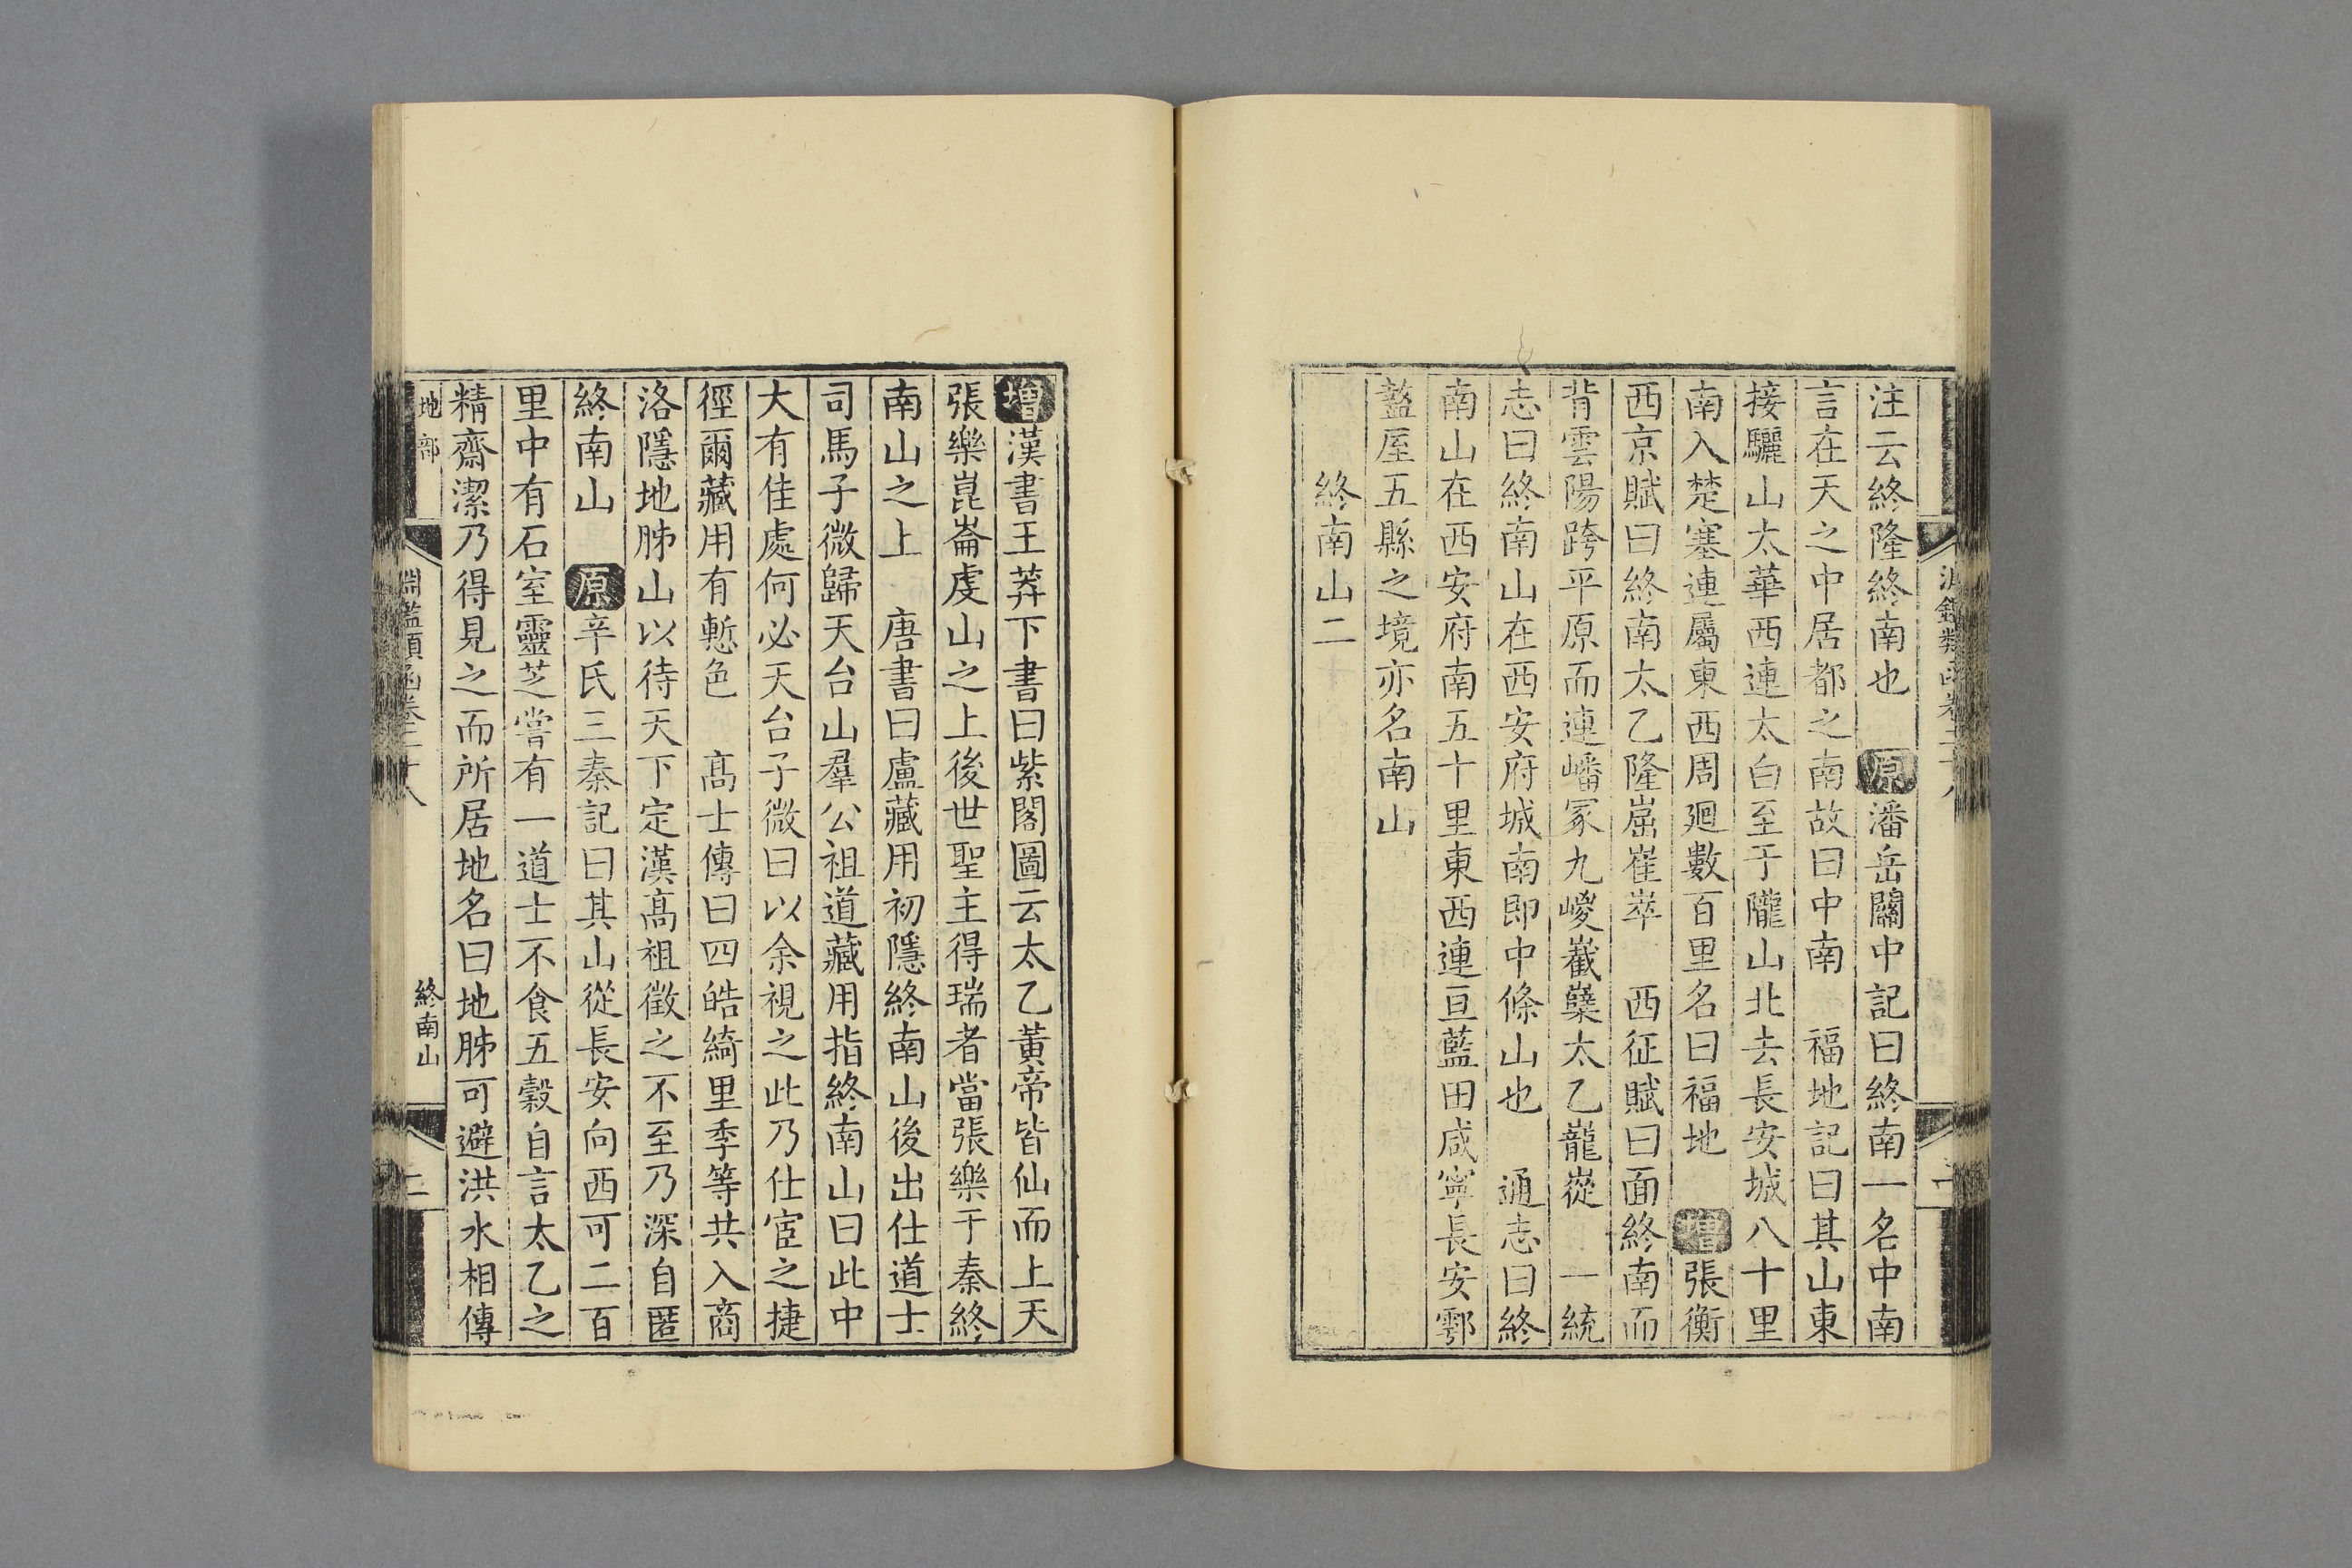 注云終隆終南也　原潘岳關中記曰終南一名中南
言在天之中居都之南故曰中南　福地記曰其山東
接驪山太華西連太白至于隴山北去長安城八十里
南入楚塞連屬東西周廻數百里名曰福地　增張衡
西京賦曰終南太乙隆崫崔崒　西征賦曰面終南而
背雲陽跨平原而連嶓冢九嵕嶻嶭太乙巃嵸　一統
志曰終南山在西安府城南即中條山也　通志曰終
南山在西安府南五十里東西連亘藍田咸寧長安鄠
盩厔五縣之境亦名南山
終南山二
增漢書王莽下書曰紫閣圖云太乙黃帝皆仙而上天
張樂崑崙虔山之上後世聖主得瑞者當張樂于秦終
南山之上　唐書曰盧藏用初隱終南山後出仕道士
司馬子微歸天台山羣公祖道藏用指終南山曰此中
大有佳處何必天台子微曰以余視之此乃仕宦之捷
徑爾藏用有慙色　髙士傳曰四皓綺里季等共入商
洛隱地肺山以待天下定漢髙祖徵之不至乃深自匿
終南山　原辛氏三秦記曰其山從長安向西可二百
里中有石室靈芝嘗有一道士不食五穀自言太乙之
精齋潔乃得見之而所居地名曰地肺可避洪水相傳
地部
淵鑑類函卷二十八
終南山
二